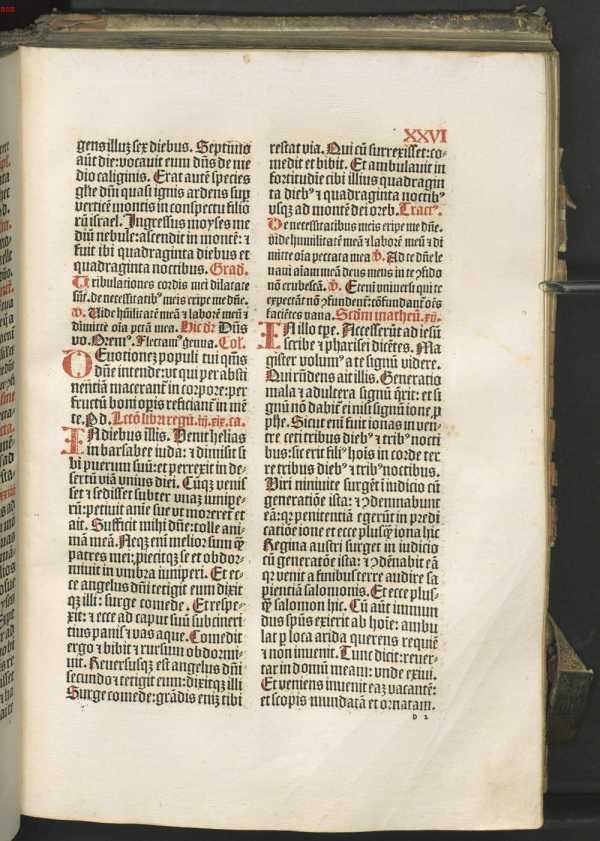 XXVI
gens illuꝫ sex diebus. Septimo
aūt die: vocauit eum dn̄s de me
dio caliginis. Erat autē species
gl̄ie dn̄i quasi ignis ardens suꝑ
verticē montis in conspectu filio
rū israel. Ingressus moyses me
diū nebule: ascendit in montē: ⁊
fuit ibi quadraginta diebus et
quadraginta noctibus. Grad.
Tribulationes cordis mei dilatate
sūt. de necessitatibꝰ meis eripe me dn̄e.
V. Uide hūilitatē meā ⁊ laborē meū ⁊
dimitte oīa pctā mea. Hic dr̄ Dn̄s
vo. Oremꝰ. Flectamꝰ genua. Col.
DEuotionez populi tui qs̄ms
dn̄e intende: vt qui per absti
nentiā macerant̄ in corpore: per
fructū boni opis reficiant̄ in mē
te. P d. Lectō libri regū. iij. xix. ca.
IN diebus illis. Uenit helias
in barsabee iuda: ⁊ dimisit si
bi puerum suū: et perrexit in de-
sertū viā vnius diei. Cūqꝫ venis
set ⁊ sedisset subter vnaꝫ iunipe-
rū: petiuit anie sue vt moreret̄ et
ait. Sufficit mihi dn̄e: tolle ani-
mā meā. Neqꝫ em̄ melior sum qꝫ
patres mei: proiecitqꝫ se et obdor-
miuit in vmbra iuniperi. Et ec-
ce angelus dn̄i tetigit eum dixit
qꝫ illi: surge comede. Et respe-
xit: ⁊ ecce ad caput suū subcineri
tius panis ⁊ vas aque. Comedit
ergo ⁊ bibit ⁊ rursum obdormi-
uit. Reuersusqꝫ est angelus dn̄i
secundo ⁊ tetigit eum: dixitqꝫ illi
Surge comede: grādis eniꝫ tibi
restat via. Qui cū surrexisset: co-
medit et bibit. Et ambulauit in
fortitudīe cibi illius quadragin
ta diebꝰ ⁊ quadraginta noctibꝰ
vsqꝫ ad montē dei oreb. Tractꝰ.
De necessitatibus meis eripe me dn̄e.
vide humilitatē meā ⁊ laborē meū ⁊ di
mitte oīa peccata mea V. Ad te dn̄e le
uaui aīam meā deus meus in te ꝯfido
nō erubescā. V. Eteni vniuersi qui te
expectāt nō ꝯfundent̄: cōfundant̄ oēs
faciētes vana. Scdm matheū. xij.
IN illo tp̄e. Accesserūt ad iesū
scribe ⁊ pharisei dicētes. Ma
gister volumꝰ a te signū videre.
Qui rn̄dens ait illis. Generatio
mala ⁊ adultera signū q̄rit: et si
gnū nō dabit̄ ei nisi signū ione ꝓ
phe. Sicut em̄ fuit ionas in ven-
tre ceti tribus diebꝰ ⁊ tribꝰ nocti
bus: sic erit filiꝰ hoīs in corde ter
re tribus diebꝰ ⁊ tribꝰ noctibus.
Uiri niniuite surgēt ī iudicio cū
generatiōe ista: ⁊ ꝯdemnabunt
eā: qꝛ penitentiā egerūt in predi
catiōe ione et ecce plusqꝫ iona hic
Regina austri surget in iudicio
cū generatōe ista: ⁊ ꝯdēnabit eā
qꝛ venit a finibus terre audire sa
pientiā salomonis. Et ecce plus-
qꝫ salomon hic. Cū aūt immun
dus spūs exierit ab hoīe: ambu
lat ꝑ loca arida querens requiē
⁊ non inuenit. Tunc dicit: reuer-
tar in domū meam: vnde exiui.
Et veniens inuenit eaꝫ vacantē:
et scopis mundatā et ornatam.
D 2